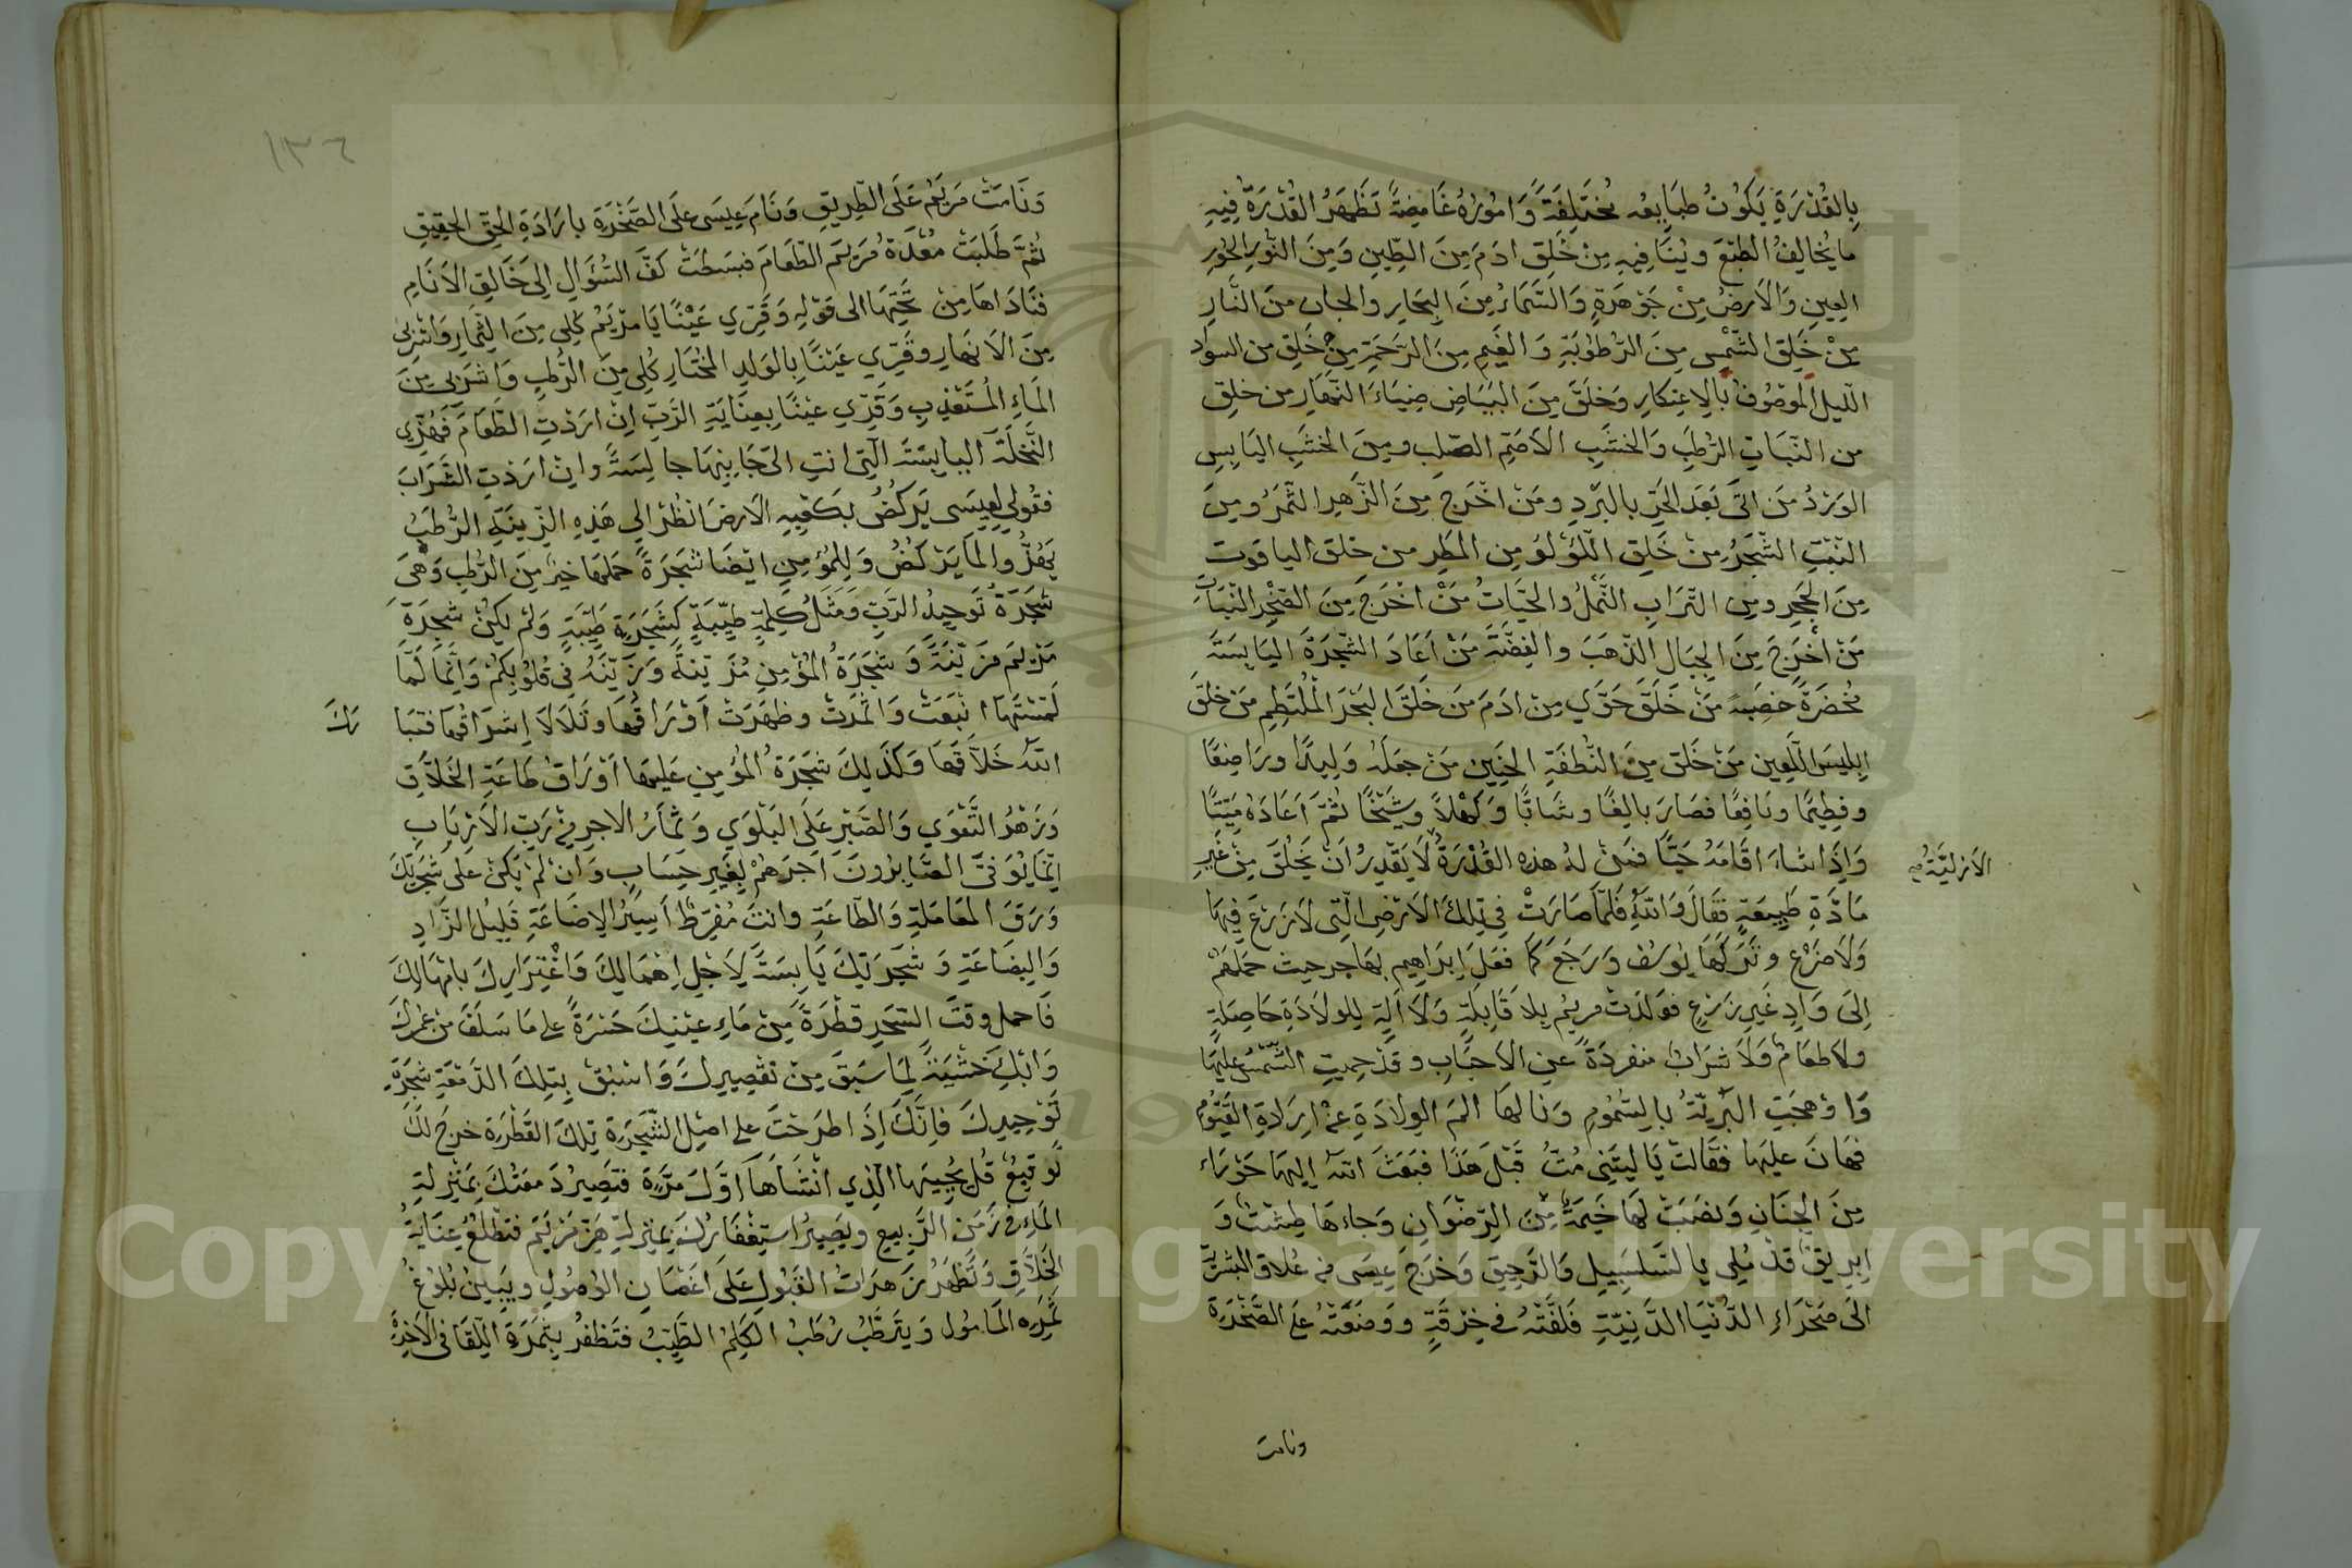 بِالقُدْرَةِ يَكُونُ طبَايعه مُختَلِفَةً وَامُورُهُ غَامِضَةً تَظْهَرُ القُدْرَةُ فِيهِ
ما يُخَالِفُ الطَبْعَ ويُنَافِيهِ مِنْ خَلَقَ ادَمَ مِنَ الطِينِ وَمِنَ النُورِ الحُورِ
العِينِ وَالاَرضُ مِنْ جَوْهَرَةٍ وَالسَّمَاءُ مِنَ البِحَارِ والجان مِنَ النَّارِ
مِنْ خَلَقَ الشَّمْسِ مِنَ الرُّطُوبَةِ وَالغَيمِ مِنَ الرَّحَمَةِ مِنْ خَلِقَ من السواد
الليل الموصُوفُ بِالِاعتِكارِ وَخَلَقَ مِنَ البَيَاضِ ضِيَاءَ النَّهَارِ من خلق
من النَبَاتِ الرُطَبَ وَالخَشَبِ الاَصَمِّ الصّلِب ومِنَ الخَشَبِ اليَابِسِ
الوَرْدُ مَن اتَى بَعَد الحَرِّ بالبَردِ ومَنْ اخْرَج مِنَ الزَّهرِ الثّمَرُ ومِنَ
النَّبْتِ الشَّجَرُ مِنْ خَلَقِ اللُّؤْلُؤ مِن المَطَرِ من خلقَ الياقوت
مِنَ الحَجَرِ ومِن التُرَابِ النَّمْلُ والحَيَاتُ مَنْ اخْرَجَ مِنَ الصَّخْرِ النَبَاتَ
مَنْ أخْرَجَ مِنَ الجِبَالِ الذَّهَبَ والفِضَّةَ مَنْ اَعَادَ الشَّجَرَةَ اليَابِسَتَه
مُخضَرَةً خَصِبَه مَنْ خَلَقَ حَوَّي مِن ادَمَ مَن خَلَقَ البَحْرَ المُلتَطِمِ مَن خلقَ
اِبلِيسَ اللَّعِين مَنْ خَلق مِنَ النُّطفَةِ الجَنِينَ مَنْ جعَلَهُ وَلِيدًا ورَاضِعًا
وفطِيمًا ونَافِعًا فصَارَ بالِغًا وشَابًّا وَكَهْلاً وشَيْخًا ثُمَّ اَعَادَهُ مَيِّتًا
وَإذَا شاءَ اقَامَهُ حَيًّا فمَنْ لهُ هذه القُدْرَةُ لاَيَقْدِرُ اَنْ يَخْلُقَ مِنْ غَيرِ
الاَزَلِيَّةُ صح
مَادَّةِ طَبِيعَةٍ فقَالَ وَاللّهِ فَلمَّا صَارَتْ فِي تِلكَ الاَرْضِ الّتِى لاَزَرْعَ فِيهَا
وَلاَضَرْع وتَرَكَهَا يُوسُف وَرَجَعَ كَمَا فعَلَ اِبَراهِيم بِهَاجر حيث حَمَلهُمْ
اِلىَ وَادٍ غَيرِ زَرْعٍ فوَلدَتْ مريمُ بِلاَ قَابِلَةٍ وَلاَ آلَةٍ لِلوِلادَةِ حَاصِلةٍ
ولاَطعَامٌ وَلاَ شَرَابٌ منفرِدَةً عن الاَحبَابِ وقَدْ حِميتِ الشَّمْسُ عَليَهَا
وَاوْهجَتِ البَرِيّةُ بالسّمُومِ ونَالهَا المَ الوِلادَةِ عنْ اِرَادَةِ القَيُّوْمِ
فهَانَ عليَها فقَالتْ يَاليتَنِى مُتُّ قَبْلَ هَذَا فبَعَثَ اللهُ اِليَهَا حَوْرَاء
مِنَ الجِنَانِ وَنصَبَتْ لهَا خَيمَةٌ مِنَ الرِضْوَانِ وَجاءهَا طِشْتٌ وَ
اِبرِيقٌ قدْ مُلِى بِالسّلسَبِيلِ وَالرّحِيقِ وَخَرَج عِيسَى من عُلاَقِ البَشرِيّة
الىَ صَحْرَاءِ الدّنْيَا الدَّنِيّةِ فلَفَّتْهُ فِي خِرْقَةٍ ووضَعَتْهُ عَلىَ الصّخْرَةِ
ونامت
١٣٦
وَنَامَتْ مَريَمُ عَلىَ الطّرِيقِ وَنَامَ عِيسَى علىَ الصّخْرَةِ بارَادَةِ الحَقِ الحَقِيقِ
ثُمَّ طَلَبَتْ مِعْدَةُ مَريَم الطّعَامَ فبسَطتْ كَفَّ السُّؤَالِ اِلىَ خَالِقِ الاَنَامِ
فنَادَاهَا مِنْ تَحْتِهَا الى قولِهِ وَقَرِّي عَيْنًا يَا مرْيَمُ كُلى مِنَ الثِمَارِ وَاشْرَبى
مِنَ الاَنهَارِ وقَرِّي عَينًا بِالوَلدِ المُخْتَارِ كُلِى مِنَ الرُّطبِ وَاشرَبى مِنَ
المَاءِ المُسْتَعْذبِ وَقَرِّي عيْنًا بِعِنَايَةِ الرّبِّ اِنْ ارَدْتِ الطَّعَامَ فَهُزِّي
النَّخْلَةَ اليابِسَةَ الّتِى انتِ الىَ جَانِبِهَا جالِسَةً وانْ ارَدْتِ الشّرَابَ
فقُولى لعِيسَى يَركُضُ بكَعْبِهِ الاَرضَ انظُرْ الي هَذِهِ الزّينَةِ الرُّطَبُ
يَهُزُّ والمَا يَرْكُضُ وَلِلمُؤْمِنِ ايْضَا شجَرَةً حَمْلهَا خيرٌ مِنَ الرُّطبِ وَهْىَ
شجَرَةُ تَوحِيدُ الرَّبِّ وَمَثَلُ كَلِمَةٍ طَيّبَةٍ كَشَجَرَةٍ طَيّبَةٍ وَلمْ يَكُنْ شجَرَةُ
مَرْيَمَ مُزَيّنَةً وَشجَرَةُ المُؤْمِنِ مُزَيّنَةً وزَيّنَهُ فِى قُلُوبِكُمْ وَاِنَّمَا لَمَّا
لمَسَتْهَا ايْنَعَتْ وَاثْمَرَتْ وظهَرَتْ اَوْرَاقُهَا وتَلَالَا اِشرَاقُهَا فتبَا
رك
اللهُ خَلاَّقُهَا وَكَذَلِكَ شجَرَةُ المُؤمِنِ عَليهَا اَوْرَاقُ طَاعَةِ الخَلاَّقِ
وَزَهْرُ التَّقْوَي وَالصّبْرِ علىَ البَلْوَي وَثِمَارُ الاجرِ مِنْ رَبِّ الاَرْبَابِ
اِنَّمَا يُوَفىَّ الصّابِرُونَ اَجرَهُمْ بِغَيرِ حِسَابٍ وَاِنْ لمْ يَكُنْ علىَ شجَرَتِكَ
وَرَقَ المعَامَلةِ وَالطّاعَةِ وانتَ مُفرِّط اَسِيرُ الاِضَاعَةِ قَلِيلُ الزّادِ
وَالبِضَاعَةِ وَشجَرَتِكَ يَابِسَةً لِاَجْلِ اِهْمَالِكَ وَاغْتِرَارِكَ بامْهَالِكَ
فَاحمل وقتَ السَّحَرِ قَطْرَةً مِنْ مَاءِ عَيْنِكَ حَسْرَةً على مَا سَلَفَ مِنْ عُمْرِكَ
وَابْكِ خَشْيَةً لِمَا سَبَقَ مِنْ تَقْصِيرِكَ وَاسْبِقْ بِتِلكَ الدّمْعَةِ شجَرَةَ
تَوْحِيدِكَ فاِنَّكَ اِذَا طرَحْتَ على اصْلِ الشّجَرَةِ تِلكَ القَطْرَة خرَج لكَ
تَوقِيعُ قُلْ يُحْيِيهَا الّذِي انْشَاَهَا اوَّلَ مَرَّةٍ فتَصِيرُ دَمعَتُكَ بِمَنْزِلَةِ
المَاءِ فِي زَمَنِ الرَّبِيعِ ويَصِيرُ استِغْفَارُكَ بمَنزِلَةِ هَزّ مَرْيَم فتَطْلعُ عِنَايَةُ
الخَلاَّقِ وَتَظهَرُ زَهرَاتُ القَبُولِ عَلىَ اغْصَانِ الوُصُولِ ويَبِينُ بُلُوغُ
ثَمَرِه المَامُول وَيَتَرَطّبُ رُطَبُ الكَلِمُ الطَّيِّبُ فتَظفرُ بِثَمَرَةِ اللّقَا فى الاَخِرَةِ
Copyright © King Saud University